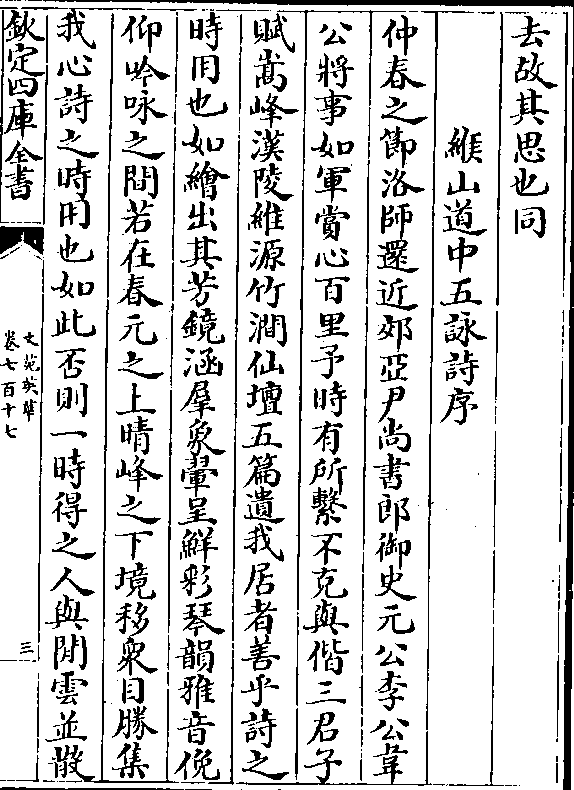 去故其思也同
緱山道中五詠詩序
仲春之節洛師還近郊亞尹尚書郎御史元公李公韋
公將事如軍賞心百里予時有所繫不克與偕三君子
賦嵩峰漢陵緱源竹澗仙壇五篇遺我居者善乎詩之
時用也如繪出其芳鏡涵羣象翬呈鮮彩琴韻雅音俛
仰吟咏之間若在春元之上晴峰之下境移衆目勝集
我心詩之時用也如此否則一時得之人與閒雲並散
欽定四庫全書
文苑英華
卷七百十七
三